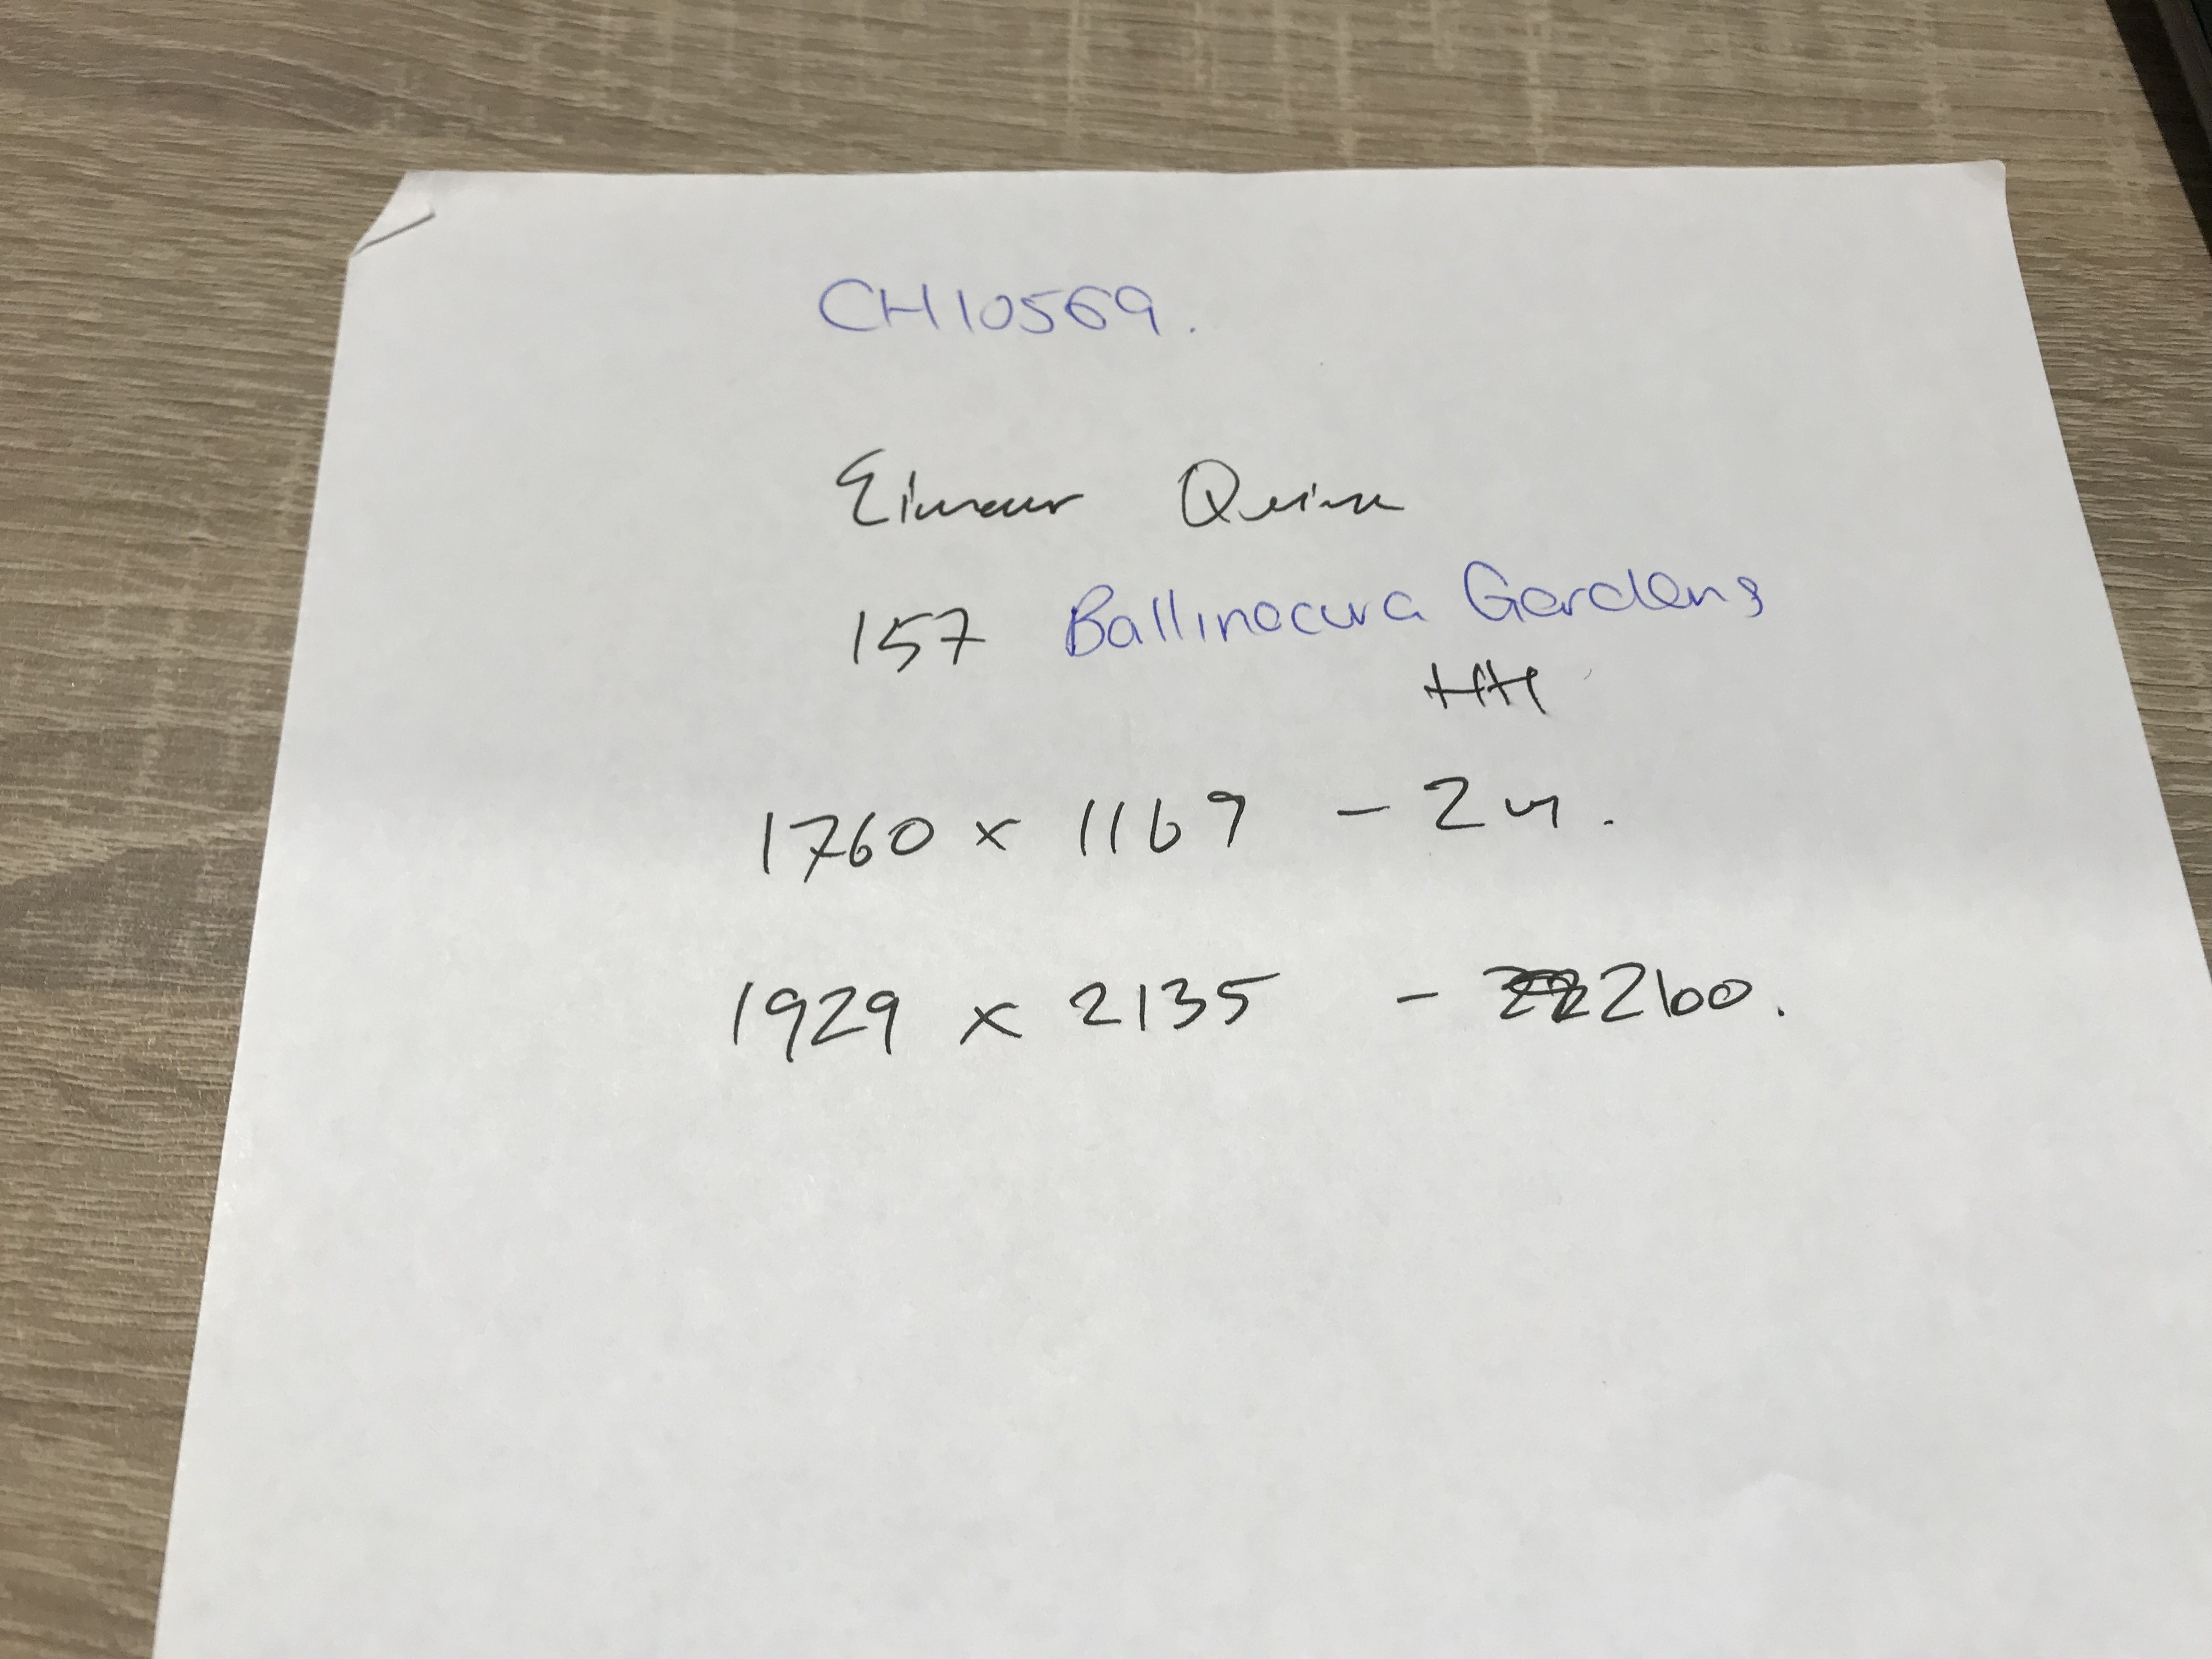 CH10569.
Eimear Quinn
157 Ballinacurra Gardens
1760 x 1169 - 2
1929 x 2135 - 2260.